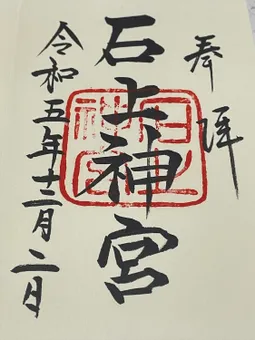 奉拝
石上神宮
令和五年十二月二日